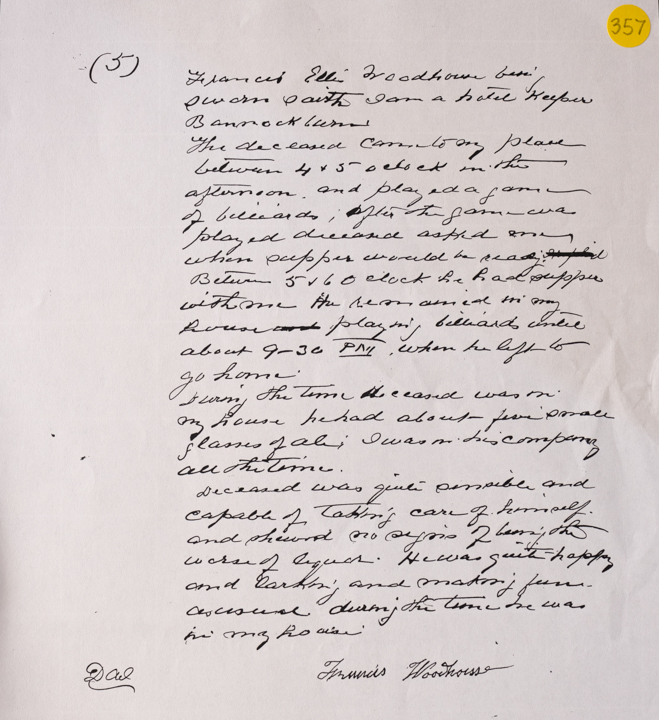 357
(5)
Francis Ellis Woodhouse being
sworn saith I am a hotel Keeper
Bannockburn
The deceased came to my place
between 4 & 5 oclock in the
afternoon. and played a game
of billiards; after the game was
played deceased asked me
when supper would be ready.
Between 5 & 6 O clock he had supper
with me He remained in my
house and playing billiards until
about 9-30 PM, when he left to
go home.
During the time deceased was in
my house he had about five small
glasses of ale; I was in his company
all the time.
Deceased was quite sensible and
capable of taking care of himself.
and shewed no signs of being the
worse of liquor. He was quite happy
and larking and making fun
as usual during the time he was
in my house
Francis Woodhouse